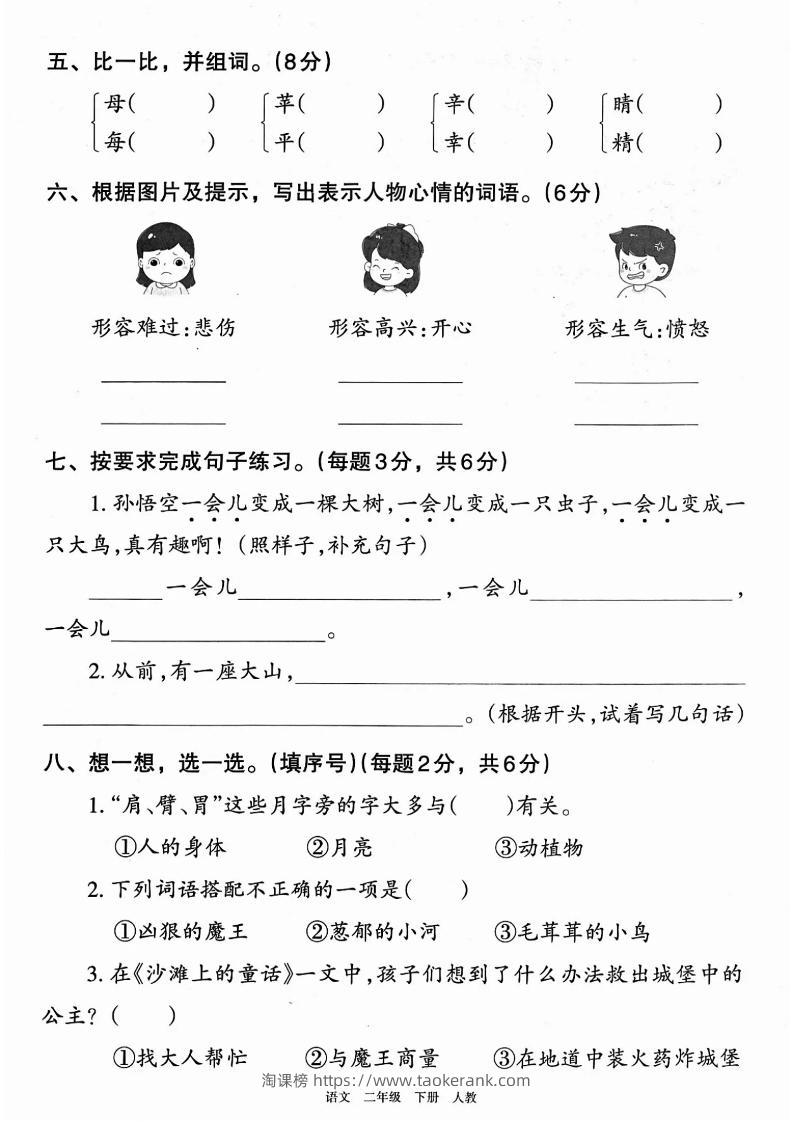 五、比一比，并组词。(8分)
母(　　) 苹(　　) 辛(　　) 睛(　　)
每(　　) 平(　　) 幸(　　) 精(　　)
六、根据图片及提示，写出表示人物心情的词语。(6分)
形容难过:悲伤 形容高兴:开心 形容生气:愤怒
七、按要求完成句子练习。(每题3分，共6分)
1. 孙悟空一会儿变成一棵大树,一会儿变成一只虫子,一会儿变成一
只大鸟,真有趣啊！(照样子,补充句子)
______一会儿________________,一会儿________________,
一会儿________________。
2. 从前,有一座大山,________________________________
________________________________。(根据开头,试着写几句话)
八、想一想，选一选。(填序号)(每题2分，共6分)
1. “肩、臂、胃”这些月字旁的字大多与(　　)有关。
①人的身体 ②月亮 ③动植物
2. 下列词语搭配不正确的一项是(　　)
①凶狠的魔王 ②葱郁的小河 ③毛茸茸的小鸟
3. 在《沙滩上的童话》一文中,孩子们想到了什么办法救出城堡中的
公主？(　　)
①找大人帮忙 ②与魔王商量 ③在地道中装火药炸城堡
淘课榜 https://www.taokerank.com
语文 二年级 下册 人教